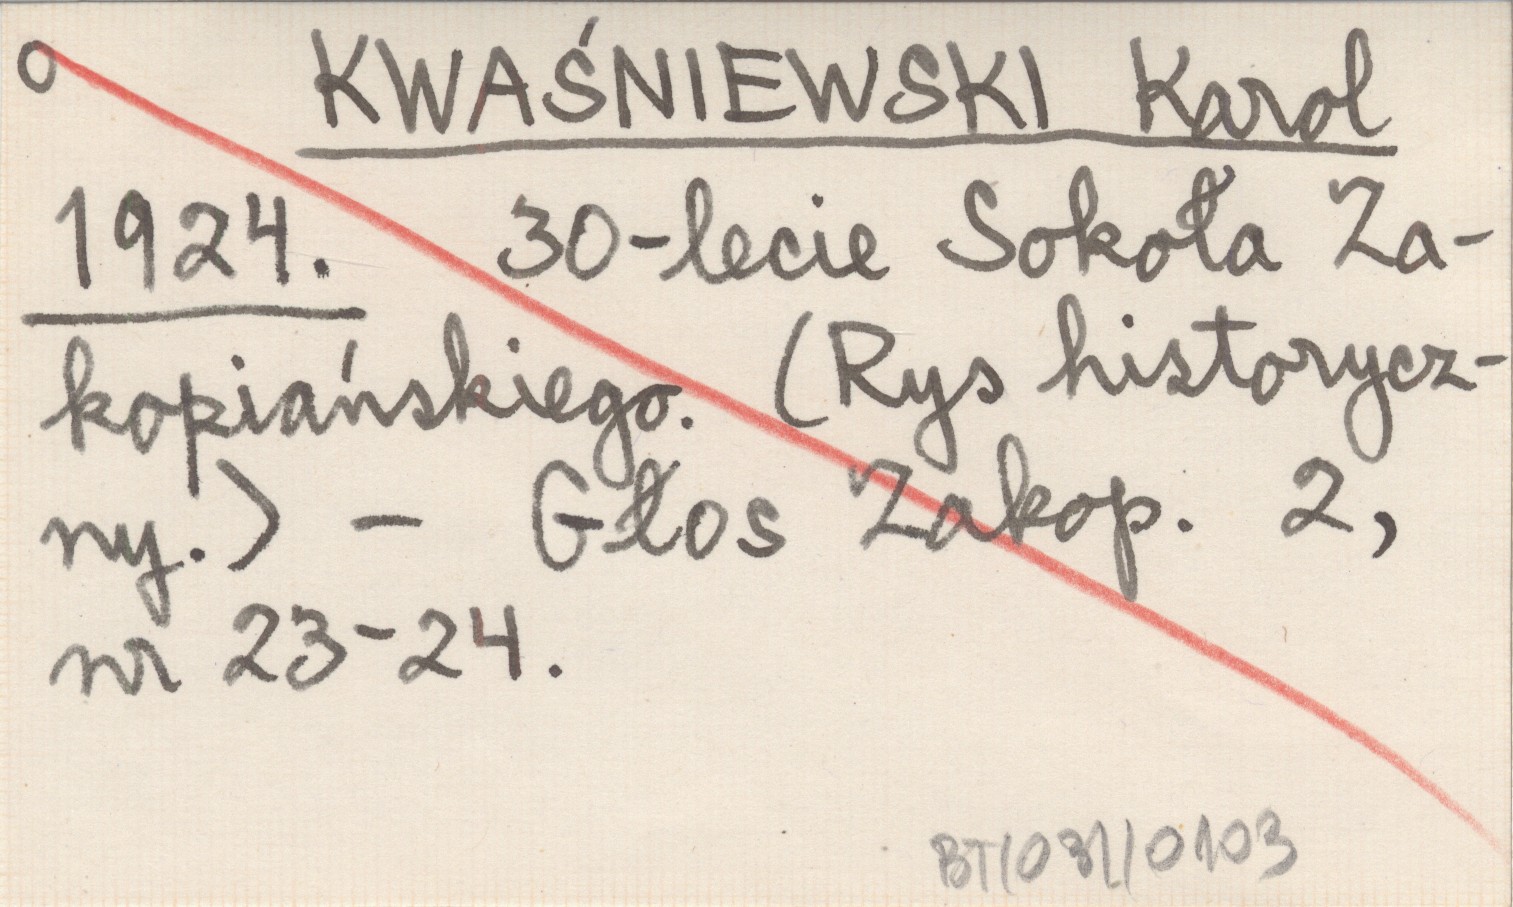 O KWAŚNIEWSKI Karol
1924. 30-lecie Sokoła Za-
kopiańskiego. (Rys historycz-
ny.) - Głos Zakop. 2,
nr 23-24.
BT/031/0103